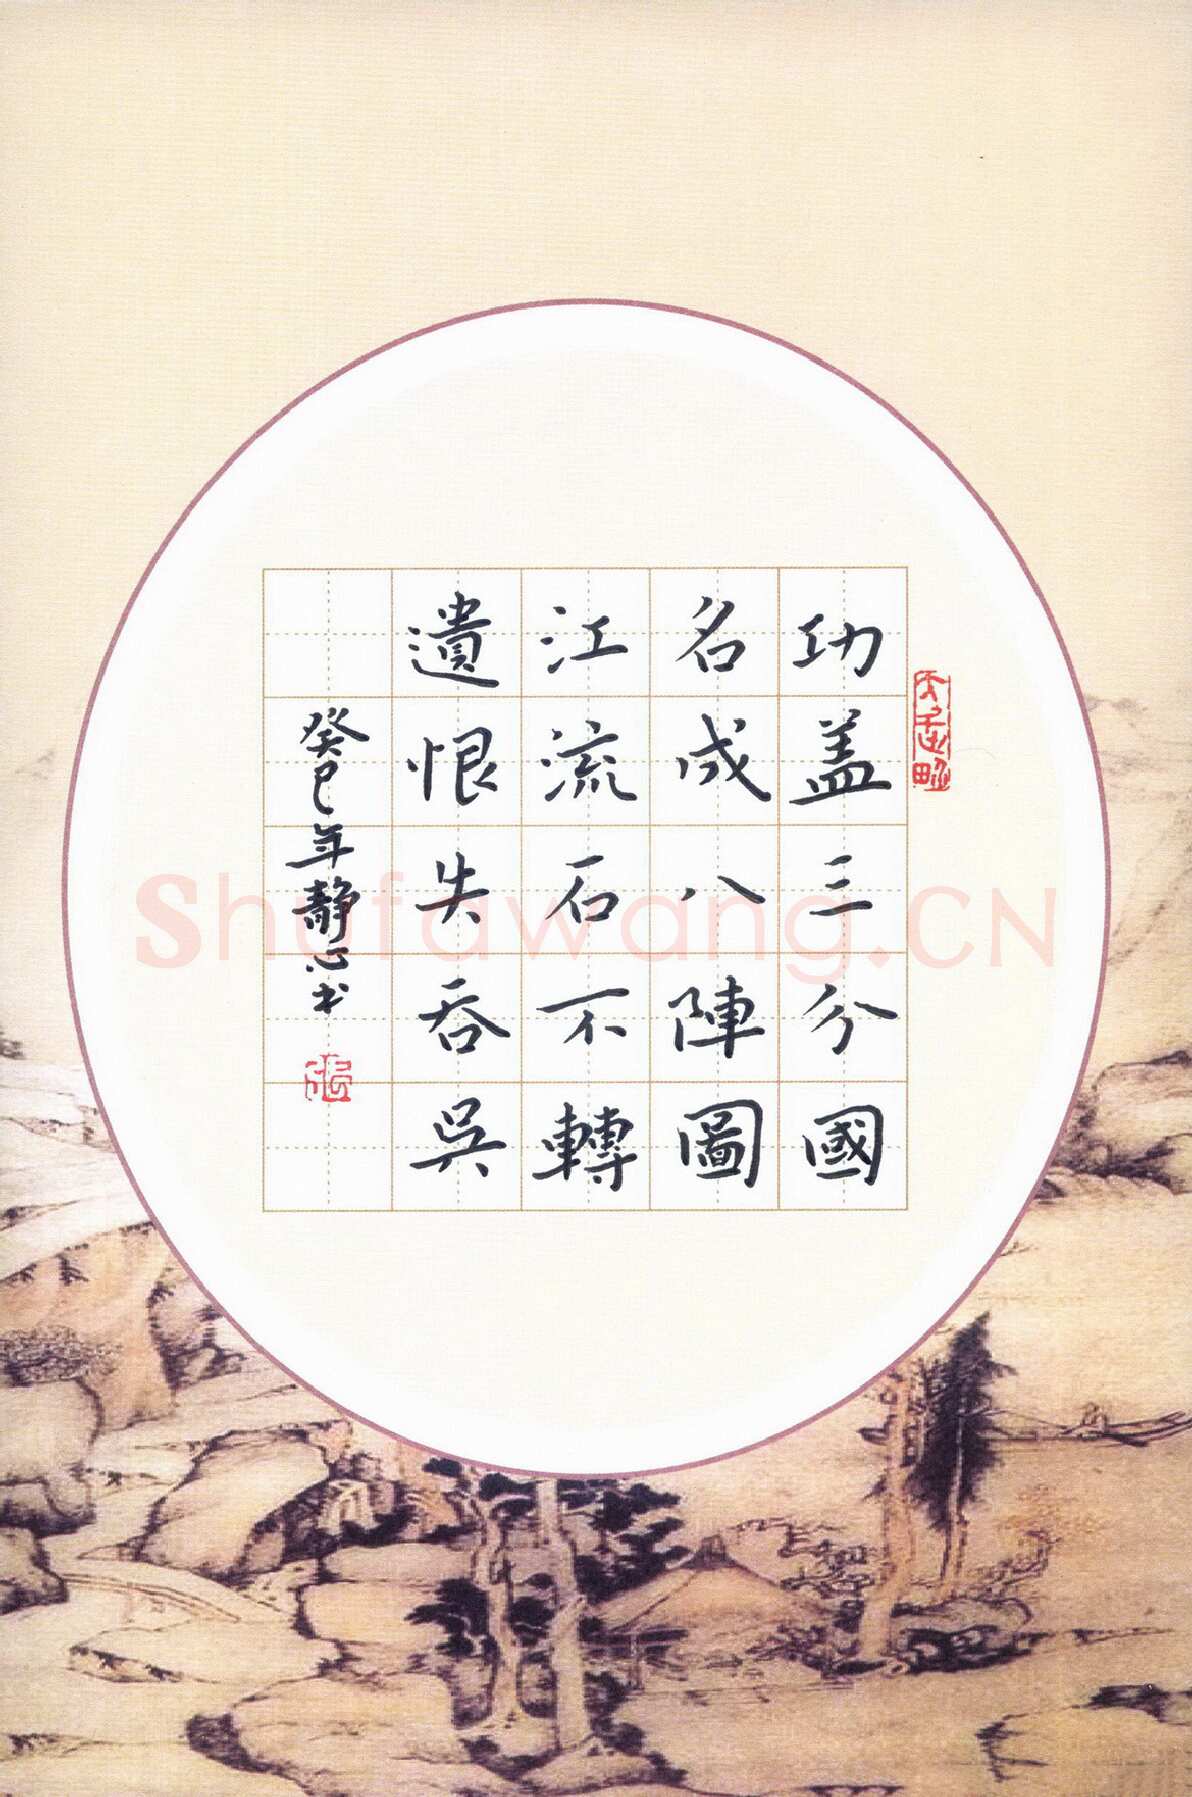 功盖三分國
名成八陣圖
江流石不轉
遺恨失吞吳
癸巳年靜心书
Shufawang.CN